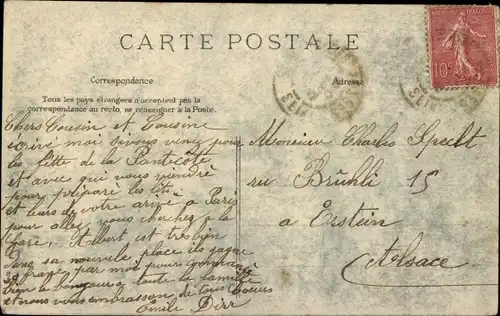 CARTE POSTALE
Correspondance
Adresse
Tous les pays étrangers n'acceptent pas la
correspondance au recto, se renseigner à la Poste.
10
Chers Cousin et Cousine
écrivé moi si vous venez pour
les fêtte de la Pantecôte
et avec qui vous viendré
pour préparé les lits
et leurs de votre arivé a Paris
pour allez vous cherchez a la
Gare, Albert est tres bien
dans sa nouvelle place ils gagne
francs par moi pour
bien le bonjours a toute la famille
et nous vous embrassons de tous Coeurs
Emile Dirr
Monsieur Charles Specht
ru Brühli 15
a Erstein
Alsace